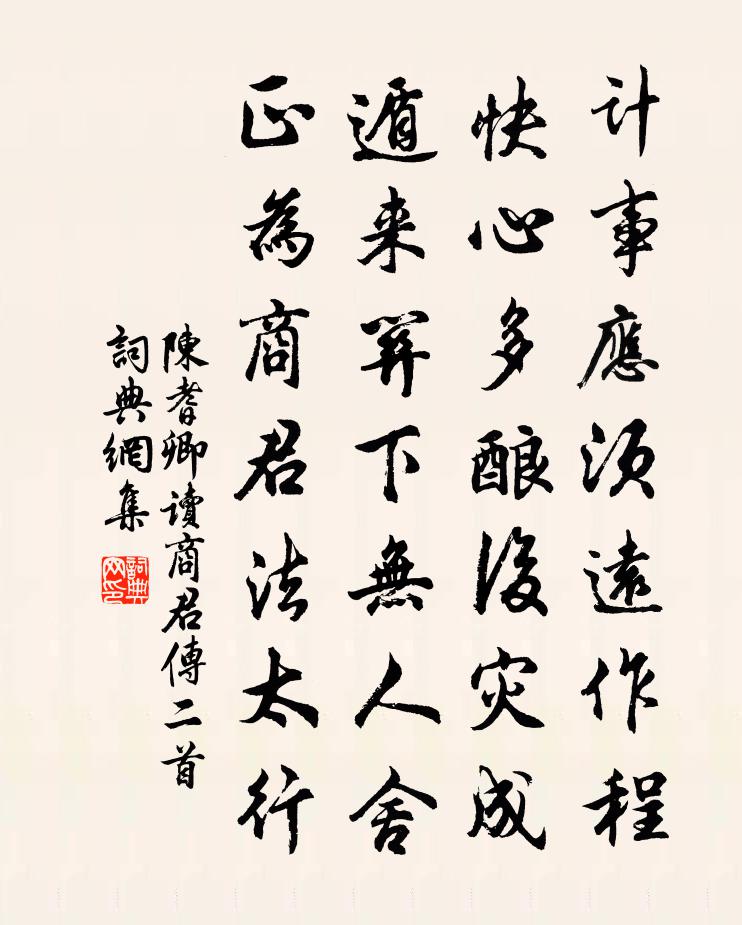 計事應須遠作程
快心多酿後灾成
遁来關下無人舍
正為商君法太行
陳耆卿讀商君傳二首
詞典網集
詞典网印